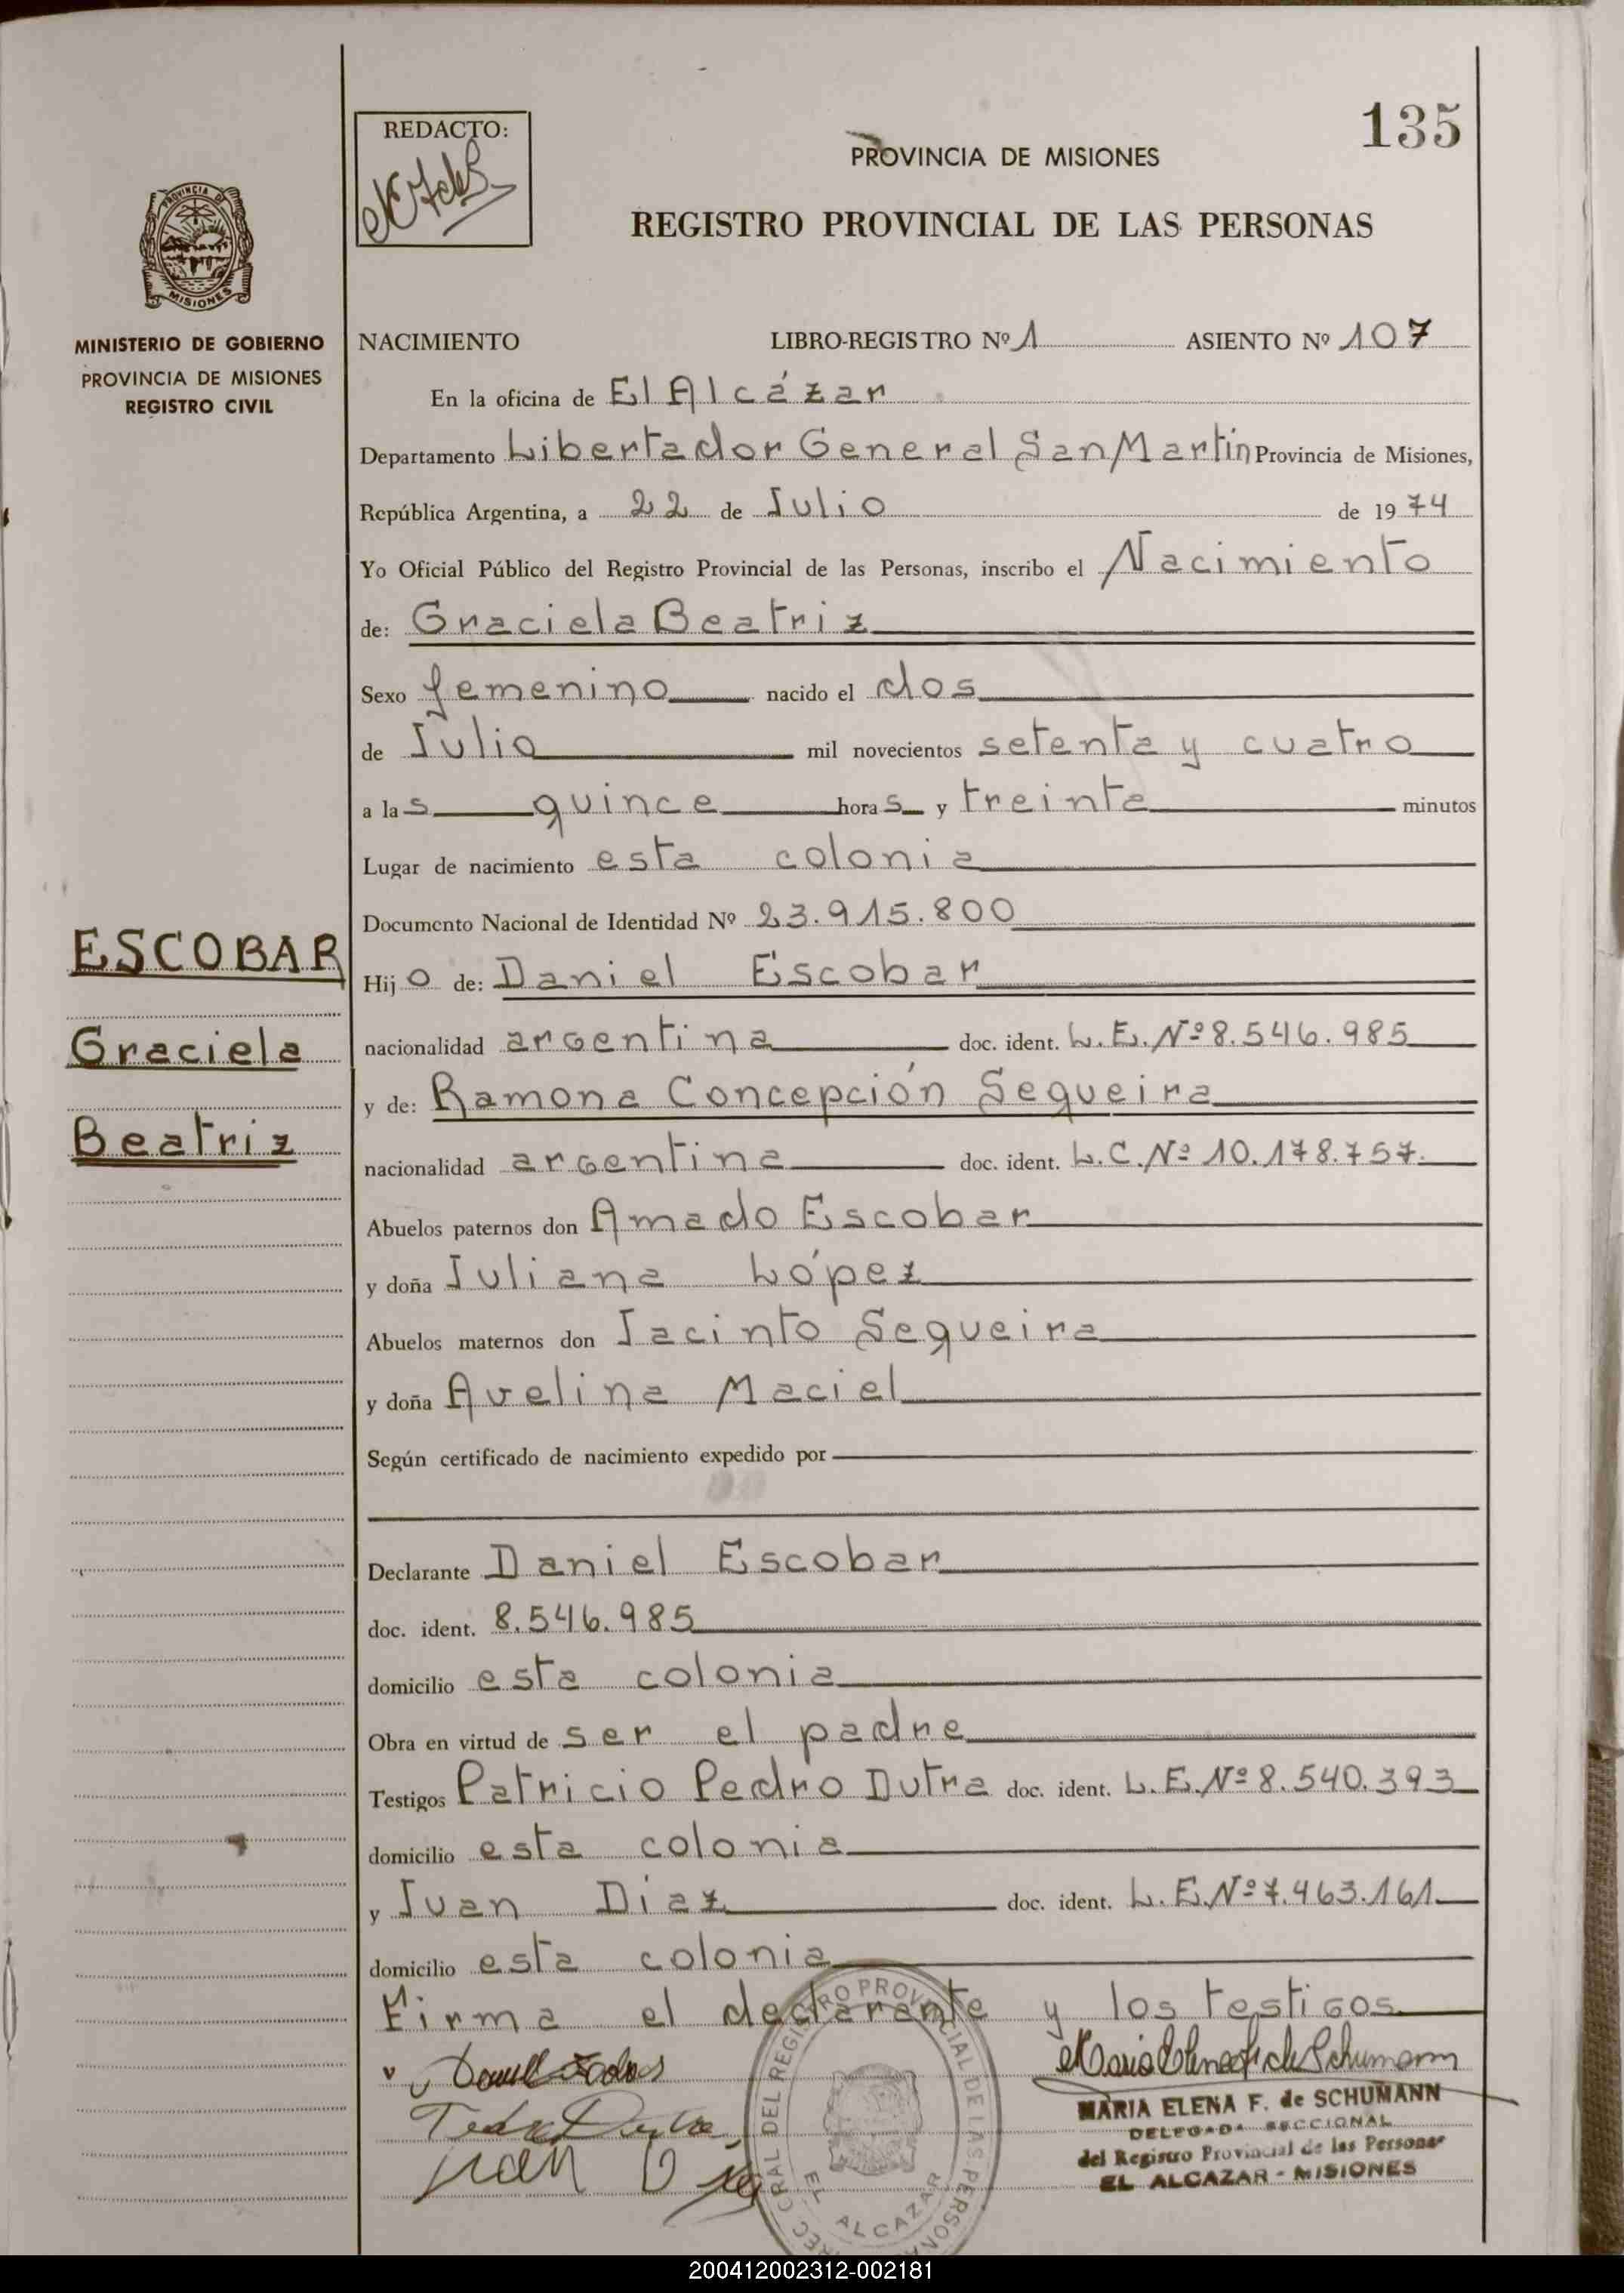 135
REDACTO:
PROVINCIA DE MISIONES
REGISTRO PROVINCIAL DE LAS PERSONAS
PROVINCIA DE
MISIONES
MINISTERIO DE GOBIERNO
PROVINCIA DE MISIONES
REGISTRO CIVIL
NACIMIENTO LIBRO-REGISTRO Nº 1 ASIENTO Nº 107
En la oficina de El Alcázar
Departamento Libertador General San Martín Provincia de Misiones,
República Argentina, a 22 de Julio de 1974
Yo Oficial Público del Registro Provincial de las Personas, inscribo el Nacimiento
de: Graciela Beatriz
Sexo femenino nacido el dos
de Julio mil novecientos setenta y cuatro
a las quince horas y treinta minutos
Lugar de nacimiento esta colonia
Documento Nacional de Identidad Nº 23.915.800
ESCOBAR
Graciela
Beatriz
Hijo de: Daniel Escobar
nacionalidad argentina doc. ident. L.E. Nº 8.546.985
y de: Ramona Concepción Sequeira
nacionalidad argentina doc. ident. L.C. Nº 10.178.757.
Abuelos paternos don Amado Escobar
y doña Juliana López
Abuelos maternos don Jacinto Sequeira
y doña Avelina Maciel
Según certificado de nacimiento expedido por
Declarante Daniel Escobar
doc. ident. 8.546.985
domicilio esta colonia
Obra en virtud de ser el padre
Testigos Patricio Pedro Dutra doc. ident. L.E. Nº 8.540.393
domicilio esta colonia
y Juan Diaz doc. ident. L.E. Nº 7.463.161
domicilio esta colonia
Firma el declarante y los testigos
Juan D
MARIA ELENA F. de SCHUMANN
DELEGADA SECCIONAL
del Registro Provincial de las Personas
EL ALCAZAR - MISIONES
GRAL DEL REGISTRO PROVINCIAL DE LAS PERSONAS
EL ALCAZAR
200412002312-002181